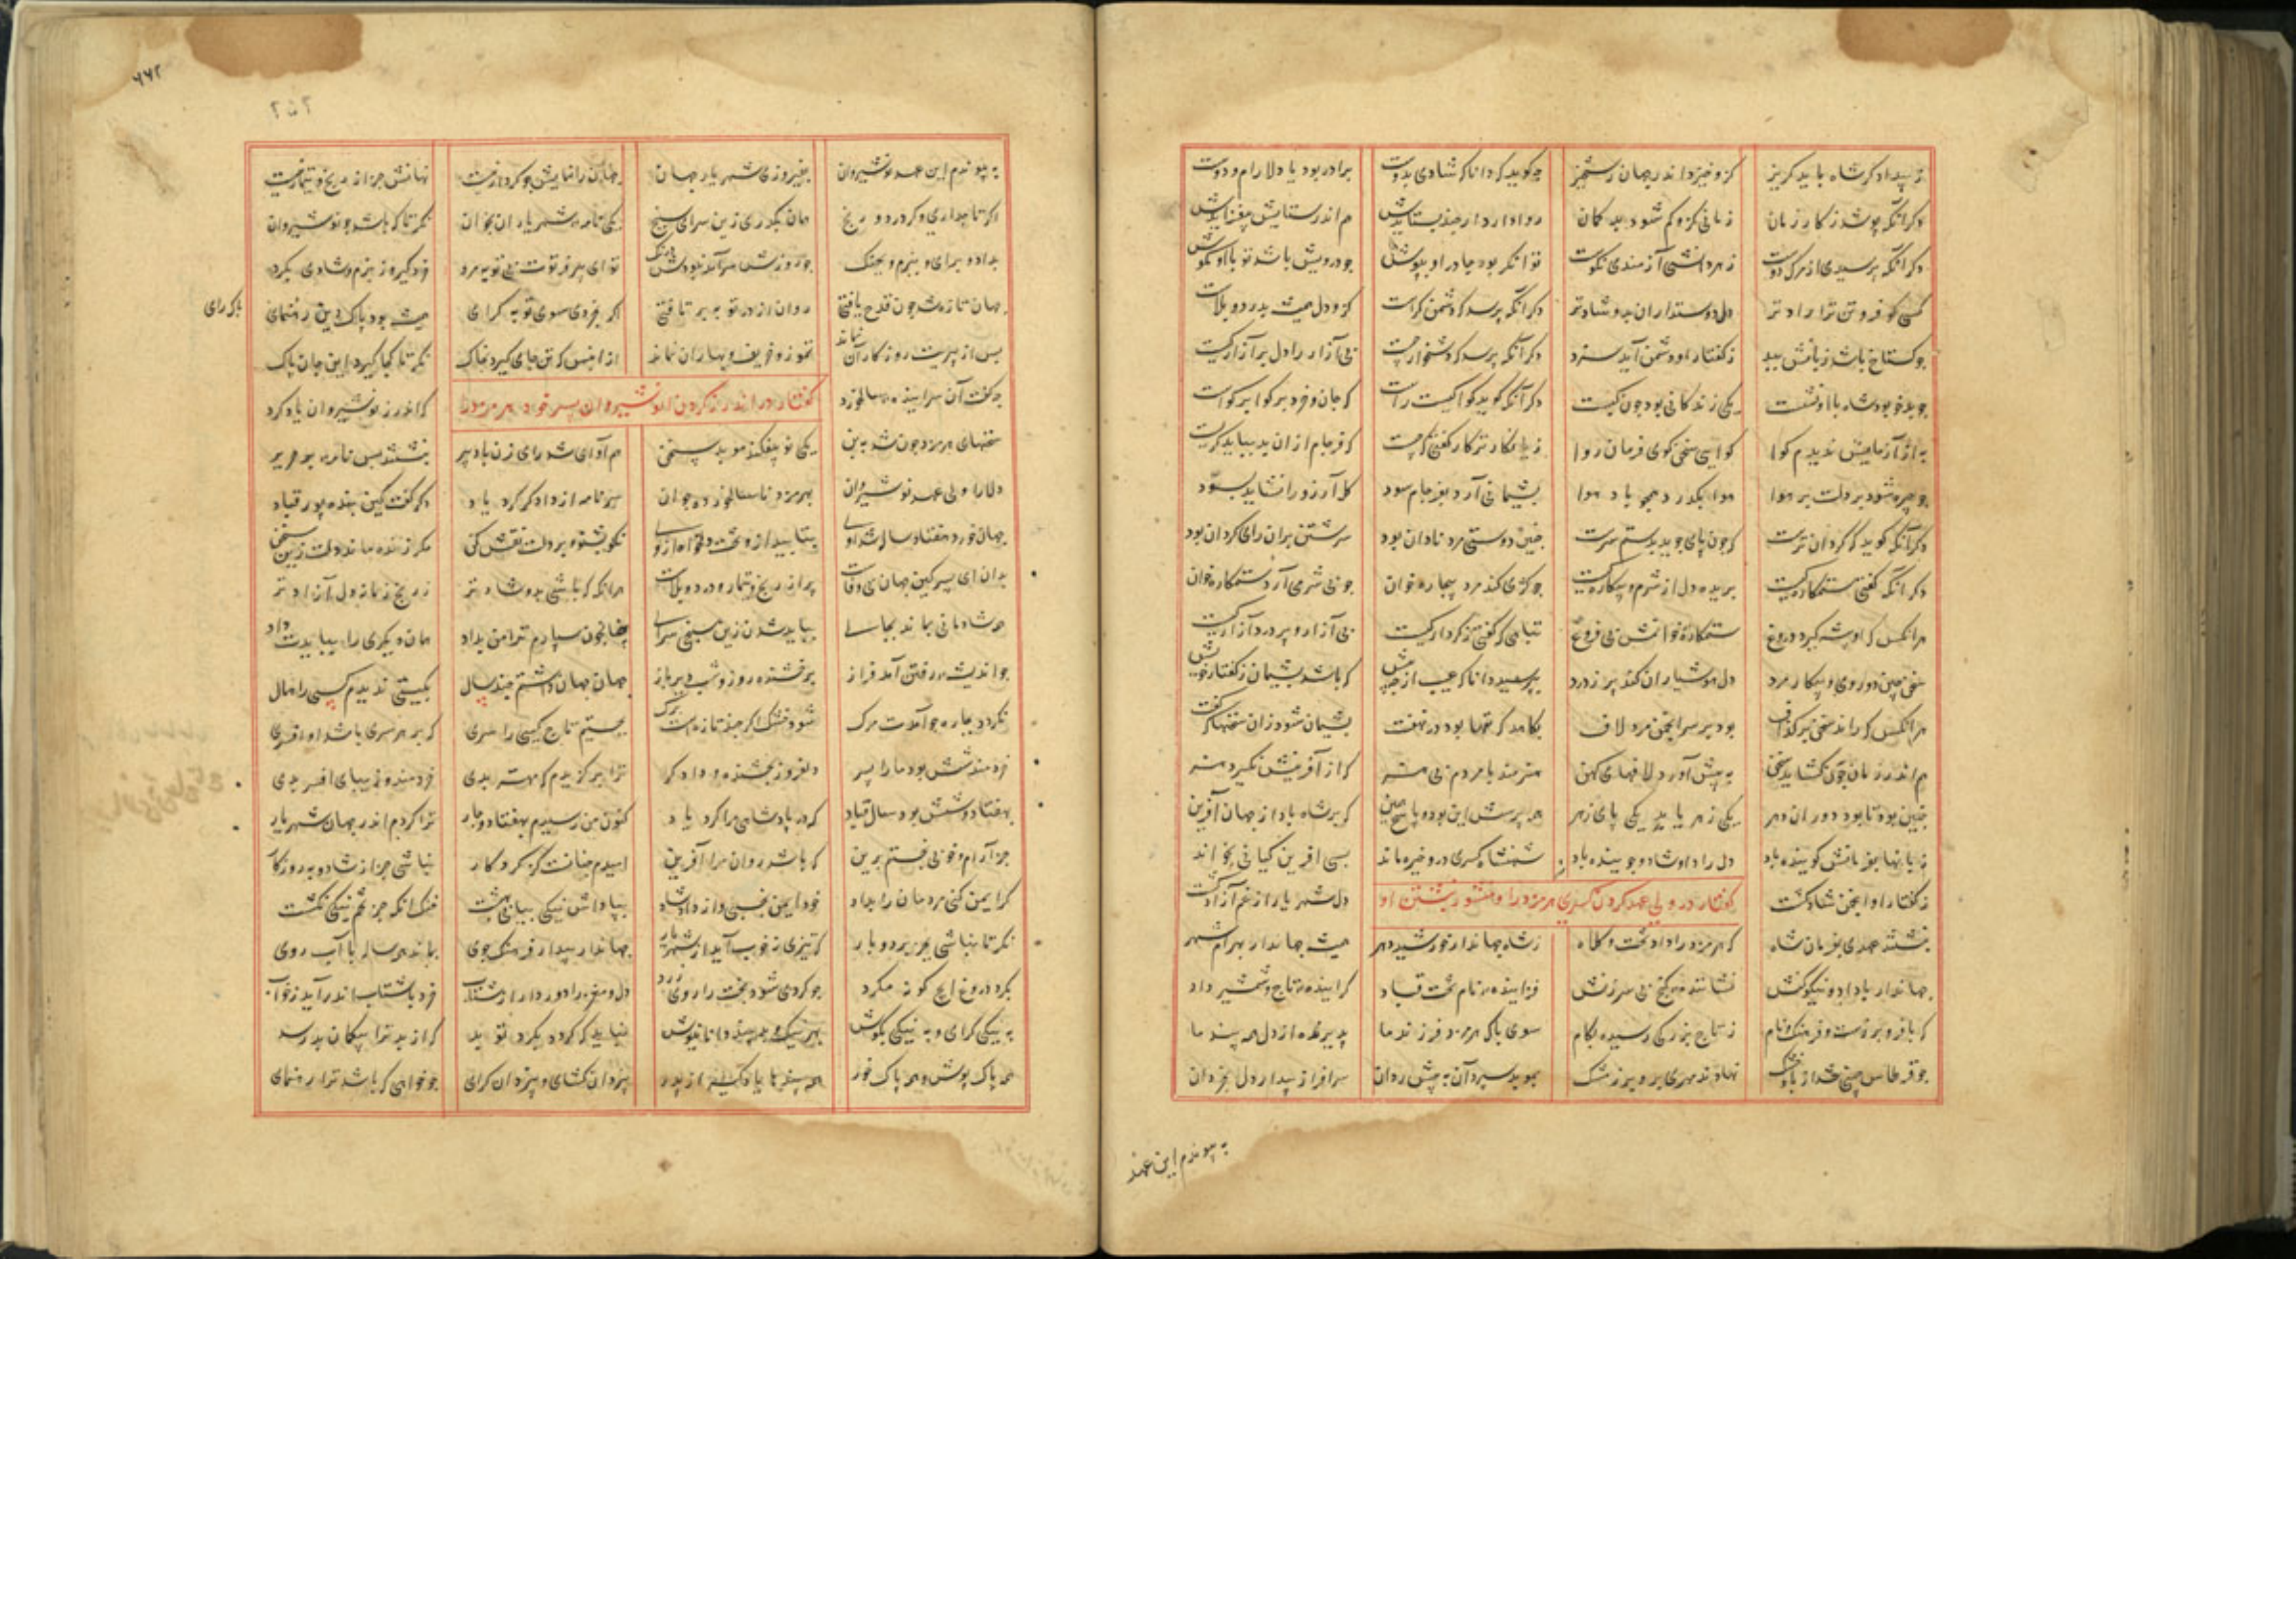 ز بیدادگر شاه باید گریز کزو خیزد اندر جهان رستخیز چه گوید که دانا که شادی بدوست برادر بود یا دلارام و دوست
دگر آنکه پرسد ز کار زمان زمانی کزو گم شود بدگمان روا دارد ار چند بستایدش هم اندر ستایش بیفزایدش
دگر آنکه پرسیدی از مرگ دوست ز هر دانشی آزمندی نکوست توانگر بود چادر او بپوش چو درویش باشد تو با او بکوش
کسی کو فروتن‌تر او رادتر دل دوستداران بدو شادتر دگر آنکه پرسد که دشمن کراست کزو دل همیشه بدرد و بلاست
چو گستاخ باشد زبانش ببد ز گفتار او دشمن آید سزد دگر آنکه پرسد که دشخوار چیست بی آزار را دل پر آزار کیست
چو بدخو بود شاه با او نشست یکی زندگانی بود چون کبست دگر آنکه گوید گوا کیست راست که جان و خرد بر گوا بر گواست
به از آزمایش ندیدم گوا گوای سخن گوی فرمان روا زیانکارتر کار گفتی که چیست که فرجام ازان بد بباید گریست
چو چیره شود بر دلت بر هوا هوا بگذرد همچو باد هوا پشیمانی آرد بفرجام سود گل آرزو را نشاید بسود
دگر آنکه گوید که گردان ترست که چون پای جوید بدستش سرست چنین دوستی مرد نادان بود سرشتش بران رای گردان بود
دگر آنکه گفتی ستمکاره کیست بریده دل از شرم و بیکاره کیست چو کژی کند مرد بیچاره خوان چو بی شرمی آرد ستمکاره خوان
هر آنکس که او پیشه گیرد دروغ ستمکاره خوانمش بی فروغ تباهی که گفتی ز کردار کیست بی آزار و پر درد آزار کیست
سخن چین دوروی و بیکار مرد دل هوشیاران کند پر ز درد بپرسید دانا که عیب از چه بیش که باشد پشیمان ز گفتار خویش
هر آنکس که راند سخن بر گزاف بود بر سر انجمن مرد لاف بگاهد که تنها بود در نهفت پشیمان شود زان سخنها که گفت
هم اندر زمان چون گشاید سخن به پیش آورد لافهای کهن هنرمند با مردم بی هنر که از آفرینش نگیرد هنر
چنین بود تا بود دوران دهر یکی زهر یابد یکی پای زهر همه پرسش این بود و پاسخ همین که بر شاه باد از جهان آفرین
زبانها بفرمانش گوینده باد دل راد او شاد و جوینده باد شهنشاه کسری درو خیره ماند بسی آفرین کیانی بخواند
ز گفتار او انجمن شاد گشت دل شهریار از غم آزاد گشت
گفتار در ولی عهد کردن کسری هرمزد را و منشور نبشتن او
نبشتند عهدی بفرمان شاه که هرمزد را داد تخت و کلاه ز شاه جهاندار خورشید دهر همیشه جهاندار بهرام شهر
جهاندار با داد و نیکو کنش نشاننده گنج بی سرزنش فزاینده نام تخت قباد گراینده تاج و شمشیر داد
که با فر و برزست و فرهنگ و نام ز تاج بزرگی رسیده بکام سوی پاک هرمزد فرزند ما پذیرفته از دل همه پند ما
چو قرطاس چینی شد از باد خشک نهادند مهری برو بر ز مشک بموبد سپرد آن به پیش ردان سرافراز بیدار دل بخردان
به پیوندم این عهد
۶۶۲
به پیوندم این عهد نوشیروان بفیروزی شهریار جهان جهان را نمایش چو کردار نیست نهانش جز از رنج و تیمار نیست
اگر تاجداری و گر درد و رنج همان بگذری زین سرای سپنج یکی نامه شهریاران بخوان نگر تا که باشد چو نوشیروان
بداد و برای و ببزم و بجنگ چو روزش سرآمد نبودش درنگ تو ای پیر فرتوت بی توبه مرد خرد گیر وز بزم و شادی بگرد
جهان تازه شد چون قدح یافتی روان از در توبه بر تافتی اگر بخردی سوی توبه گرای همیشه بود پاک دین رهنمای
پاک رای
بس از پیریت روزگاران نماند تموز و خریف و بهاران نماند ازان پس که تن جای گیرد بخاک نگر تا کجا گیرد این جان پاک
گفتار در اندرز کردن انوشیروان پسر خود هرمزد را
چه گفت آن سراینده سالخورد که اندرز نوشیروان یاد کرد
سخنهای هرمزد چون شد به بن یکی نو پی افکند موبد سخن هم آوای شد رای زن با دبیر نبشتند پس نامه بر حریر
دلارا ولی عهد نوشیروان بهرمزد ناسالخورده جوان سر نامه از دادگر کرد یاد دگر گفت کین پند پور قباد
جهان خورد هفتاد سال شد او بتابید ازو بخت دلخواه ازو نکو بشنو و بر دلت نقش کن مگر زنده ماند دلت زین سخن
بدان ای پسر کین جهان بی وفاست پر از رنج و تیمار و درد و بلاست هرانگه که باشی بدو شادتر ز رنج زمانه دل آزادتر
همه شادمانی بماند بجای بباید شدن زین سپنجی سرای چنانچون سپارم ترا من بداد همان دیگری را بباییدت داد
چو اندیشه رفتن آمد فراز برخشنده روز و شب دیرباز جهان جهان داشتم چند سال بگیتی ندیدم کسی را همال
نگردد چاره چو آمدت مرگ شود خشک اگر چند تازه‌ست برگ بجستیم تاج کیی را سری که بر هر سری باشد او افسری
خردمند شش بود ما را پسر دلفروز بخشنده و دادگر ترا برگزیدم که مهتر بدی خردمند و زیبای افسر بدی
بهفتاد و شش بود سال قباد که در پادشاهی مرا کرد یاد کنون من رسیدم بهفتاد و چار ترا کردم اندر جهان شهریار
جز آرام و خوبی نجستم برین که باشد روان مرا آفرین امیدم چنانست کز کردگار نباشی جز از شاد و به روزگار
گر ایمن کنی مردمان را بداد خود ایمن بخسپی و از داد شاد بپاداش نیکی بیابی بهشت خنک آنکه جز تخم نیکی نکشت
نگر تا نباشی بجز بردبار که تیزی نه خوب آید از شهریار جهاندار بیدار فرهنگ جوی بماند همه ساله با آب روی
بگرد دروغ ایچ گونه مگرد چو گردی شود بخت را روی زرد دل و مغز را دور دار از شتاب خرد با شتاب اندر آید بخواب
به نیکی گرای و به نیکی بکوش بهر نیک و بد پند دانا نیوش نباید که گردد بگرد تو بد کز بد ترا بیگمان بد رسد
همه پاک پوش و همه پاک خور همه پندها یاد گیر از پدر به یزدان گشای و به یزدان گرای چو خواهی که باشد ترا رهنمای